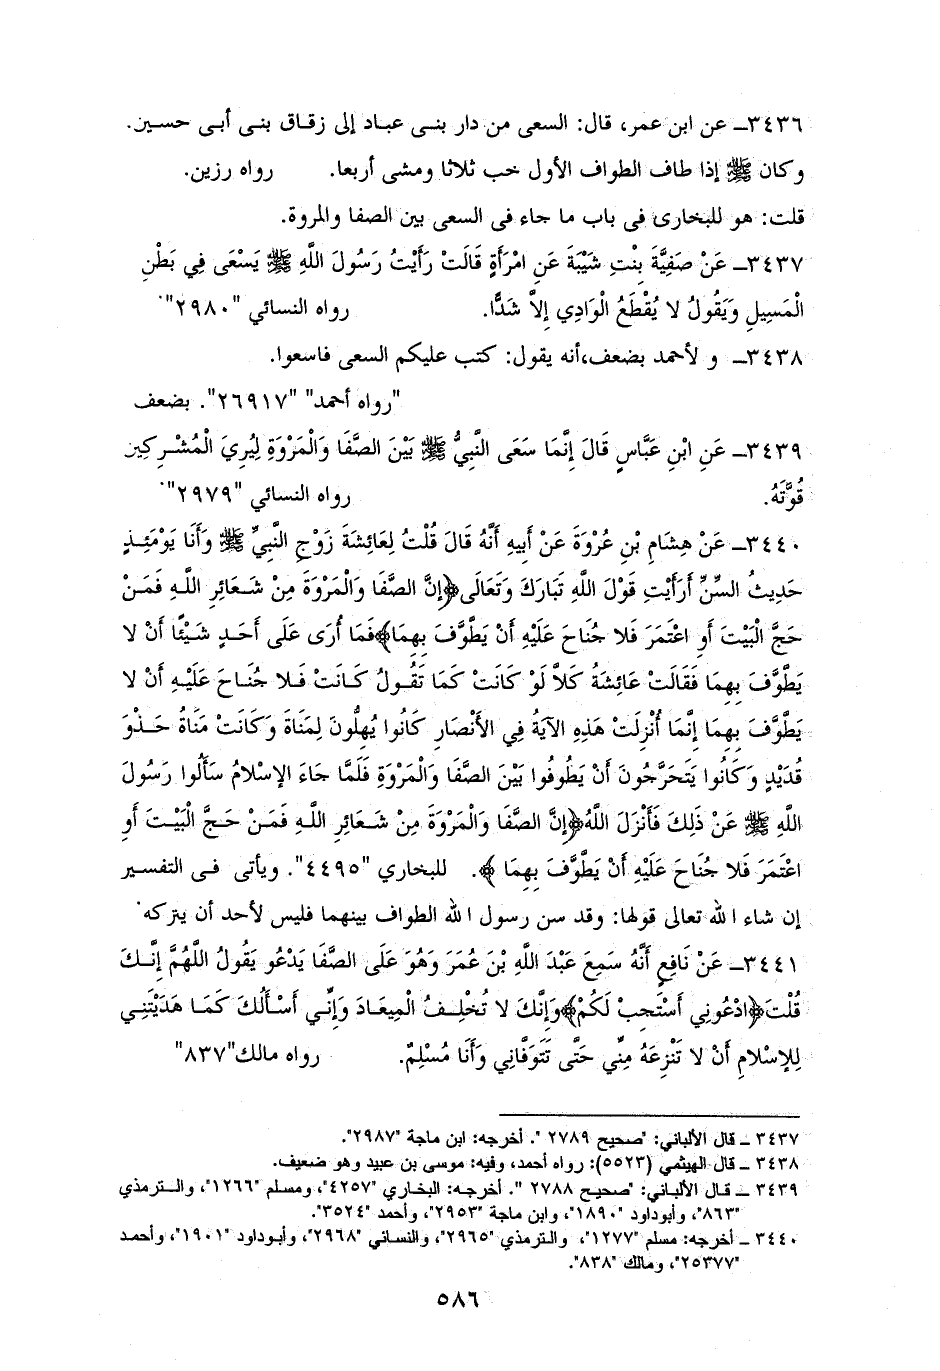 ٣٤٣٦ـ عن ابن عمر، قال: السعى من دار بنى عباد إلى زقاق بنى أبى حسين.
وكان ﷺ إذا طاف الطواف الأول خب ثلاثا ومشى أربعا. رواه رزين.
قلت: هو للبخارى فى باب ما جاء فى السعى بين الصفا والمروة.
٣٤٣٧ـ عَنْ صَفِيَّةَ بِنْتِ شَيْبَةَ عَنِ امْرَأَةٍ قَالَتْ رَأَيْتُ رَسُولَ اللَّهِ ﷺ يَسْعَى فِي بَطْنِ
الْمَسِيلِ وَيَقُولُ لا يُقْطَعُ الْوَادِي إِلاَّ شَدًّا. رواه النسائي "٢٩٨٠".
٣٤٣٨ـ و لأحمد بضعف،أنه يقول: كتب عليكم السعى فاسعوا.
"رواه أحمد" "٢٦٩١٧". بضعف
٣٤٣٩ـ عَنِ ابْنِ عَبَّاسٍ قَالَ إِنَّمَا سَعَى النَّبِيُّ ﷺ بَيْنَ الصَّفَا وَالْمَرْوَةِ لِيُرِيَ الْمُشْرِكِينَ
قُوَّتَهُ. رواه النسائي "٢٩٧٩".
٣٤٤٠ـ عَنْ هِشَامِ بْنِ عُرْوَةَ عَنْ أَبِيهِ أَنَّهُ قَالَ قُلْتُ لِعَائِشَةَ زَوْجِ النَّبِيِّ ﷺ وَأَنَا يَوْمَئِذٍ
حَدِيثُ السِّنِّ أَرَأَيْتِ قَوْلَ اللَّهِ تَبَارَكَ وَتَعَالَى﴿إِنَّ الصَّفَا وَالْمَرْوَةَ مِنْ شَعَائِرِ اللَّهِ فَمَنْ
حَجَّ الْبَيْتَ أَوِ اعْتَمَرَ فَلا جُنَاحَ عَلَيْهِ أَنْ يَطَّوَّفَ بِهِمَا﴾فَمَا أُرَى عَلَى أَحَدٍ شَيْئًا أَنْ لا
يَطَّوَّفَ بِهِمَا فَقَالَتْ عَائِشَةُ كَلاَّ لَوْ كَانَتْ كَمَا تَقُولُ كَانَتْ فَلا جُنَاحَ عَلَيْهِ أَنْ لا
يَطَّوَّفَ بِهِمَا إِنَّمَا أُنْزِلَتْ هَذِهِ الآيَةُ فِي الأَنْصَارِ كَانُوا يُهِلُّونَ لِمَنَاةَ وَكَانَتْ مَنَاةُ حَذْوَ
قُدَيْدٍ وَكَانُوا يَتَحَرَّجُونَ أَنْ يَطُوفُوا بَيْنَ الصَّفَا وَالْمَرْوَةِ فَلَمَّا جَاءَ الإِسْلامُ سَأَلُوا رَسُولَ
اللَّهِ ﷺ عَنْ ذَلِكَ فَأَنْزَلَ اللَّهُ﴿إِنَّ الصَّفَا وَالْمَرْوَةَ مِنْ شَعَائِرِ اللَّهِ فَمَنْ حَجَّ الْبَيْتَ أَوِ
اعْتَمَرَ فَلا جُنَاحَ عَلَيْهِ أَنْ يَطَّوَّفَ بِهِمَا ﴾. للبخاري "٤٤٩٥". ويأتى فى التفسير
إن شاء الله تعالى قولها: وقد سن رسول الله الطواف بينهما فليس لأحد أن يتركه.
٣٤٤١ـ عَنْ نَافِعٍ أَنَّهُ سَمِعَ عَبْدَ اللَّهِ بْنَ عُمَرَ وَهُوَ عَلَى الصَّفَا يَدْعُو يَقُولُ اللَّهُمَّ إِنَّكَ
قُلْتَ﴿ادْعُونِي أَسْتَجِبْ لَكُمْ﴾وَإِنَّكَ لا تُخْلِفُ الْمِيعَادَ وَإِنِّي أَسْأَلُكَ كَمَا هَدَيْتَنِي
لِلإِسْلامِ أَنْ لا تَنْزِعَهُ مِنِّي حَتَّى تَتَوَفَّانِي وَأَنَا مُسْلِمٌ. رواه مالك"٨٣٧"
٣٤٣٧ ـ قال الألباني: "صحيح ٢٧٨٩ ". أخرجه: ابن ماجة "٢٩٨٧".
٣٤٣٨ ـ قال الهيثمي (٥٥٢٣): رواه أحمد، وفيه: موسى بن عبيد وهو ضعيف.
٣٤٣٩ ـ قال الألباني: "صحيح ٢٧٨٨ ". أخرجه: البخاري "٤٢٥٧"، ومسلم "١٢٦٦"، والترمذي
"٨٦٣"، وأبوداود "١٨٩٠"، وابن ماجة "٢٩٥٣"، وأحمد "٣٥٢٤".
٣٤٤٠ ـ أخرجه: مسلم "١٢٧٧"، والترمذي "٢٩٦٥"، والنسائي "٢٩٦٨"، وأبوداود "١٩٠١"، وأحمد
"٢٥٣٧٧"، ومالك "٨٣٨".
٥٨٦